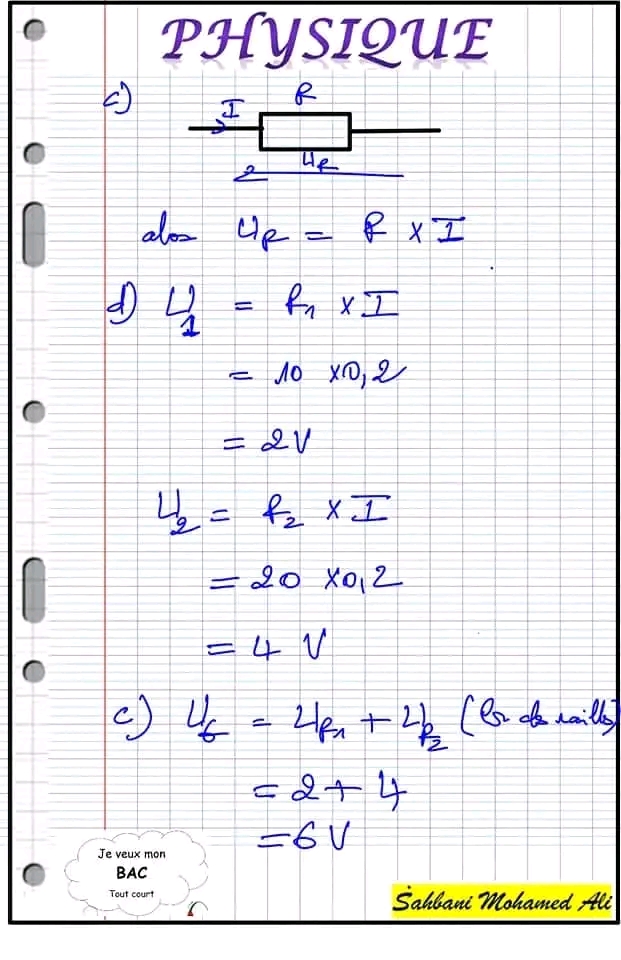 PHYSIQUE
c)
I
R
U_R
alors U_R = R x I
d) U_1 = R_1 x I
= 10 x 0,2
= 2V
U_2 = R_2 x I
= 20 x 0,2
= 4 V
e) U_G = U_R1 + U_R2 (loi des mailles)
= 2 + 4
= 6 V
Je veux mon
BAC
Tout court
Sahbani Mohamed Ali